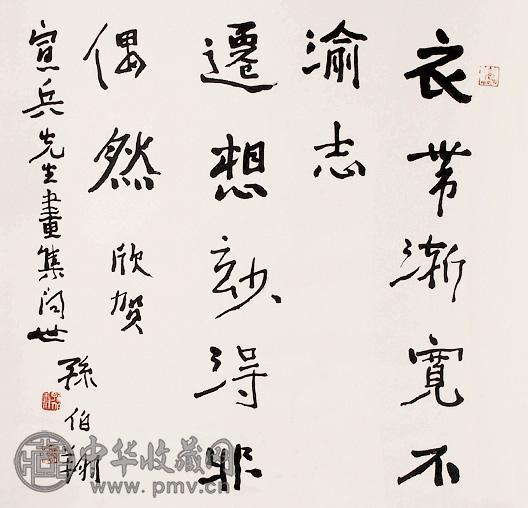 衣带渐宽不
渝志
遷想妙得非
偶然 欣贺
宣兵先生畫集问世
孫伯翔
中华收藏网
www.pmv.cn